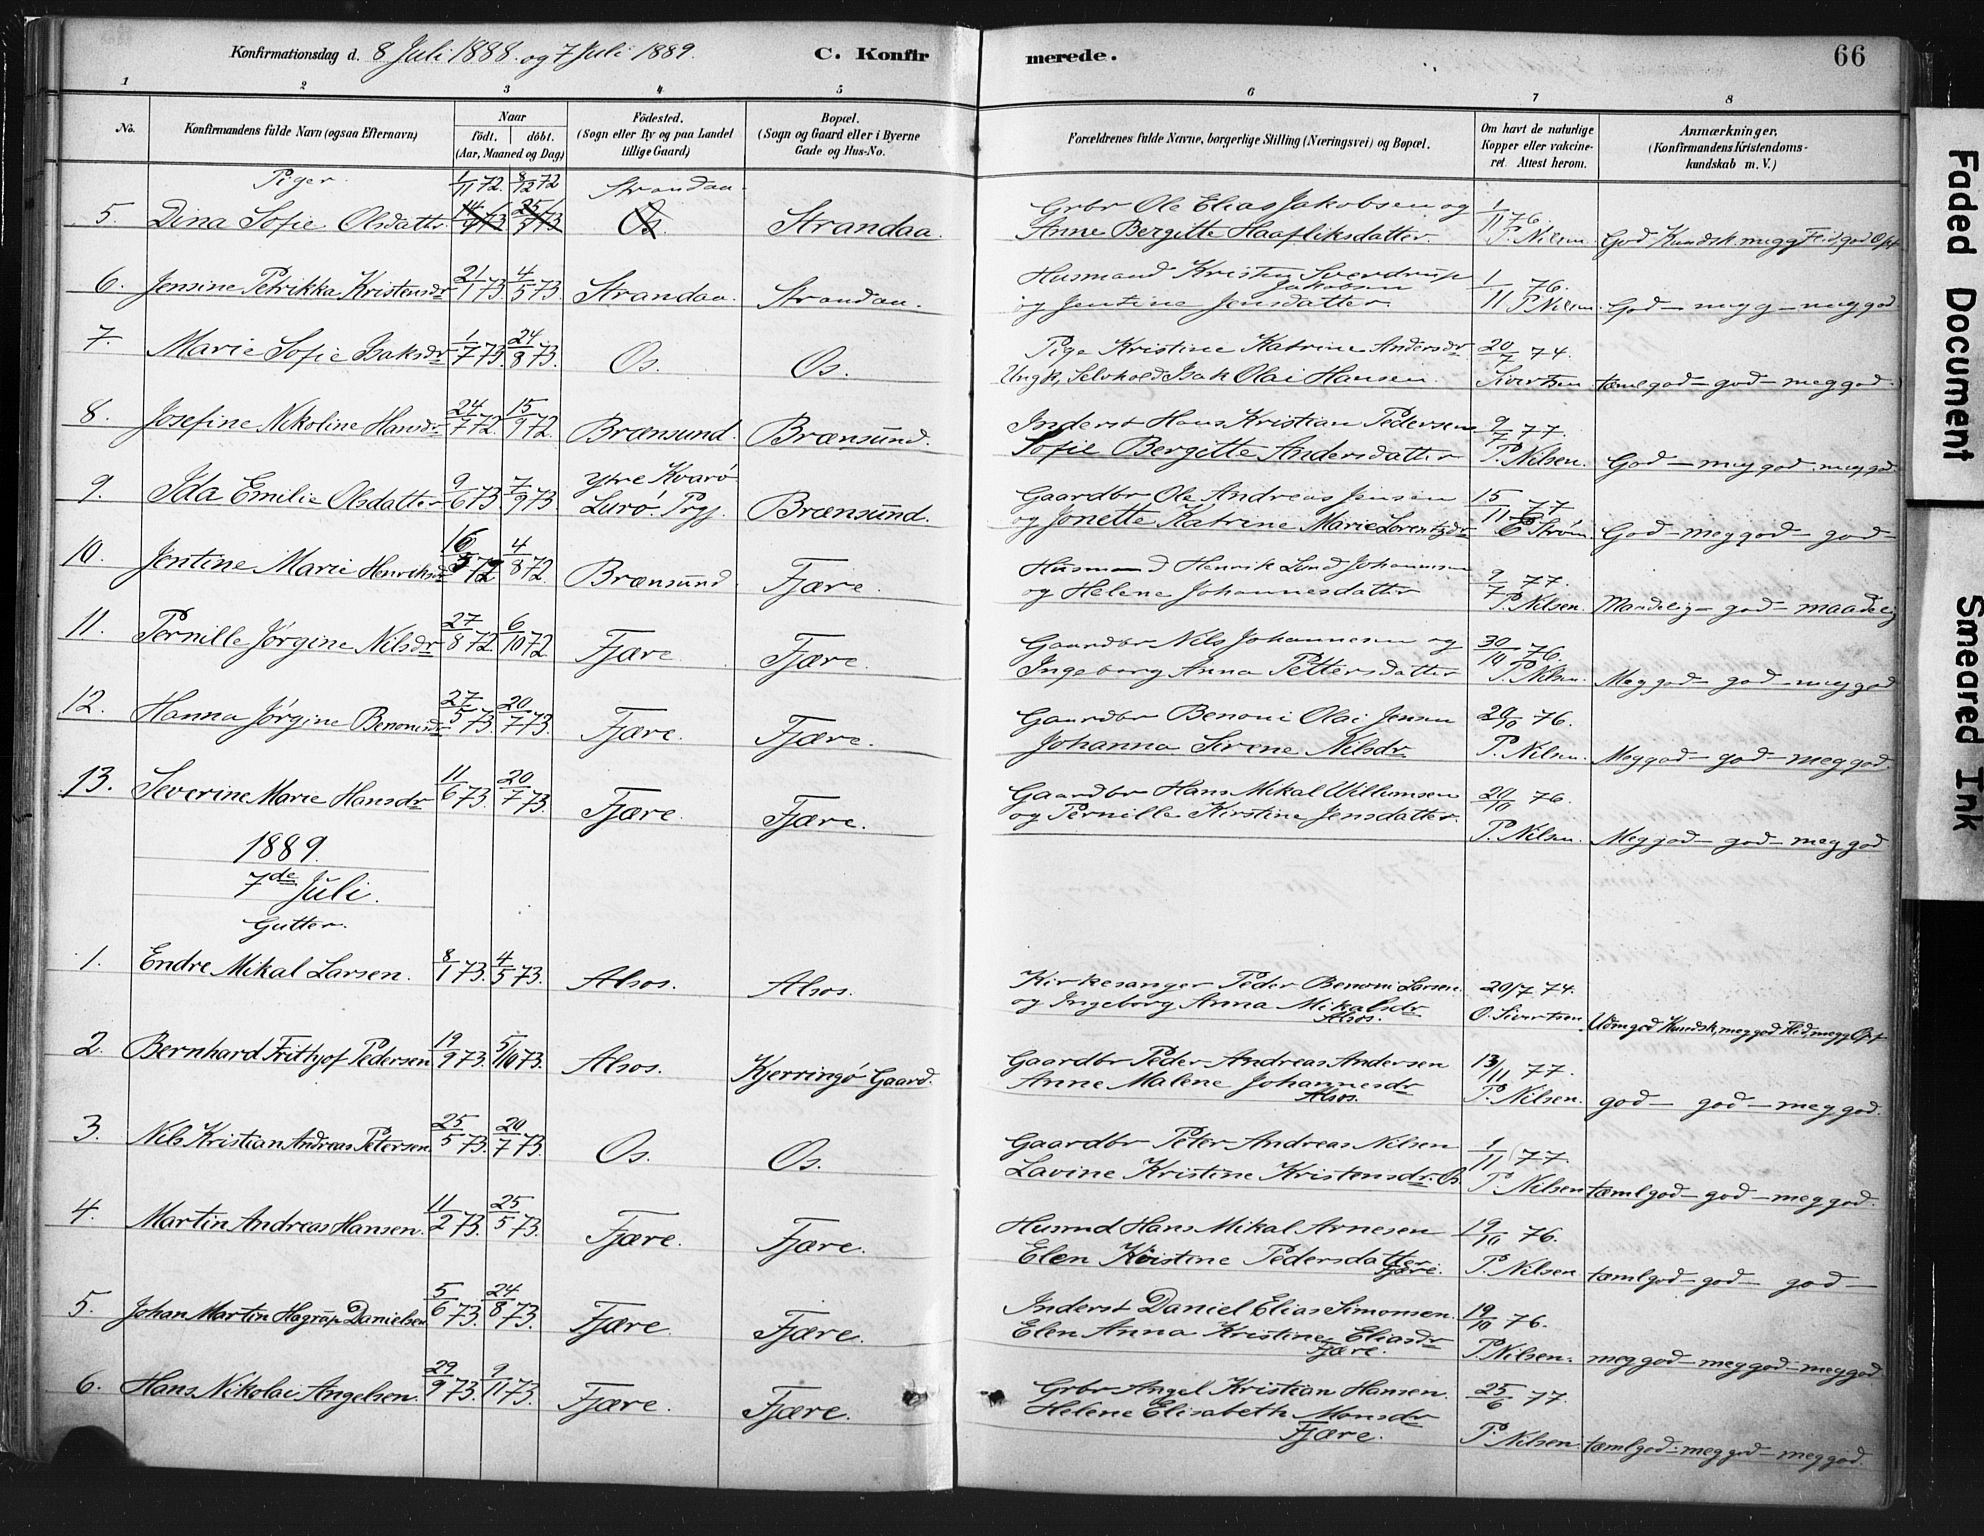 Konfirmationsdag d. 8 Juli 1888 og 7 Juli 1889. C. Konfirmerede. 66
1 2 3 4 5 6 7 8
No. Konfirmandens fulde Navn (ogsaa Efternavn) Naar født. døbt. (Aar, Maaned og Dag) Fødested. (Sogn eller By og paa Landet tillige Gaard) Bopæl. (Sogn og Gaard eller i Byerne Gade og Hus-No. Forældrenes fulde Navne, borgerlige Stilling (Næringsvei) og Bopæl. Om havt de naturlige Kopper eller vakcineret. Attest herom. Anmærkninger, (Konfirmandens Kristendomskundskab m. V.)
Piger. 1/11 72. 8/12 72 Strandaa.
5. Dina Sofie Olsdatter Os. Strandaa. Grbr Ole Elias Jakobsen og 1/11 76.
Anne Bergitte Haafliksdatter. P. Nilsen God Kundsk. megg Flid, god Opf
6. Jensine Petrikka Kristensdr 21/1 73. 4/5 73. Strandaa. Strandaa. Husmand Kristen Sverdrup Jakobsen 1/11 76.
og Jentine Jensdatter. P. Nilsen God — meg g — meg god
7. Marie Sofie Isaksdr 1/7 73. 24/8 73. Os. Os. Pige Kristine Katrine Andersdr 20/7 74.
Ungk, Selvhold Isak Olai Hansen. Sivertsen tæmlgod — god — meg god.
8. Josefine Nikoline Hansdr 24/7 72. 15/9 72. Brænsund. Brænsund. Inderst Hans Kristian Pedersen 9/7 77.
Sofie Bergitte Andersdatter P. Nilsen. God — meg god. meg god
9. Ida Emilie Olsdatter 9/6 73. 7/9 73. Ytre Kvarø Lurø Prgj. Brænsund. Gaardbr Ole Andreas Jensen 15/11 77
og Jonette Katrine Marie Lorentzdr Strøm God — meg god — god —
10. Jentine Marie Henriksdr 16/5 72 4/8 72 Brænsund Fjære. Husmand Henrik Lund Johannesen 9/7 77.
og Helene Johannesdatter P. Nilsen. Maadelig — god — maadelig
11. Pernille Jørgine Nilsdr 27/8 72. 6/10 72. Fjære Fjære. Gaardbr Nils Johannesen og 30/10 76.
Ingeborg Anna Pettersdatter P. Nilsen. Meg god — god — meg god
12. Hanna Jørgine Benonisdr 27/5 73. 20/7 73. Fjære. Fjære. Gaardbr Benoni Olai Jensen 20/10 76.
Johanna Sirene Nilsdr P. Nilsen. Meg god — god — meg god.
13. Severine Marie Hansdr 11/6 73. 20/7 73. Fjære. Fjære. Gaardbr Hans Mikal Willumsen 20/10 76.
og Pernille Kirstine Jensdatter. P. Nilsen. Meg god — god — meg god
1889.
7de Juli.
Gutter.
1. Endre Mikal Larsen. 8/1 73. 4/5 73. Alsos. Alsos. Kirkesanger Peder Benoni Larsen. 20/7 74.
og Ingeborg Anna Mikalsdr Alsos. O. Sivertsen. Udm god Kundsk, meg god Flid, megg Opf
2. Bernhard Frithjof Pedersen 19/9 73. 5/10 73. Alsos. Kjerringø Gaard. Gaardbr Peder Andreas Andersen 13/11 77.
Anne Malene Johannesdr Alsos. P. Nilsen. god — god — meg god.
3. Nils Kristian Andreas Petersen. 25/5 73. 20/7 73. Os. Os. Gaardbr Peter Andreas Nilsen 1/11 77.
Lavine Kristine Kristensdr. Os. P. Nilsen tæmlgod — god — meg god.
4. Martin Andreas Hansen. 11/2 73. 25/5 73. Fjære. Fjære. Husmd Hans Mikal Arnesen 19/10 76.
Elen Kristine Pedersdatter Fjære. P. Nilsen tæmlgod — god — god —
5. Johan Martin Hagrup Danielsen 5/6 73. 24/8 73. Fjære. Fjære. Inderst Daniel Elias Simonsen. 19/10 76.
Elen Anna Kristine Eliasdr Fjære. P. Nilsen. meg god — meg god — meg god
6. Hans Nikolai Angelsen. 29/9 73. 9/11 73. Fjære. Fjære. Grbr Angel Kristian Hansen. 25/6 77.
Helene Elisabeth Monsdr Fjære. P. Nilsen. tæmlgod — meg god — meg god.
Faded Document
Smeared Ink